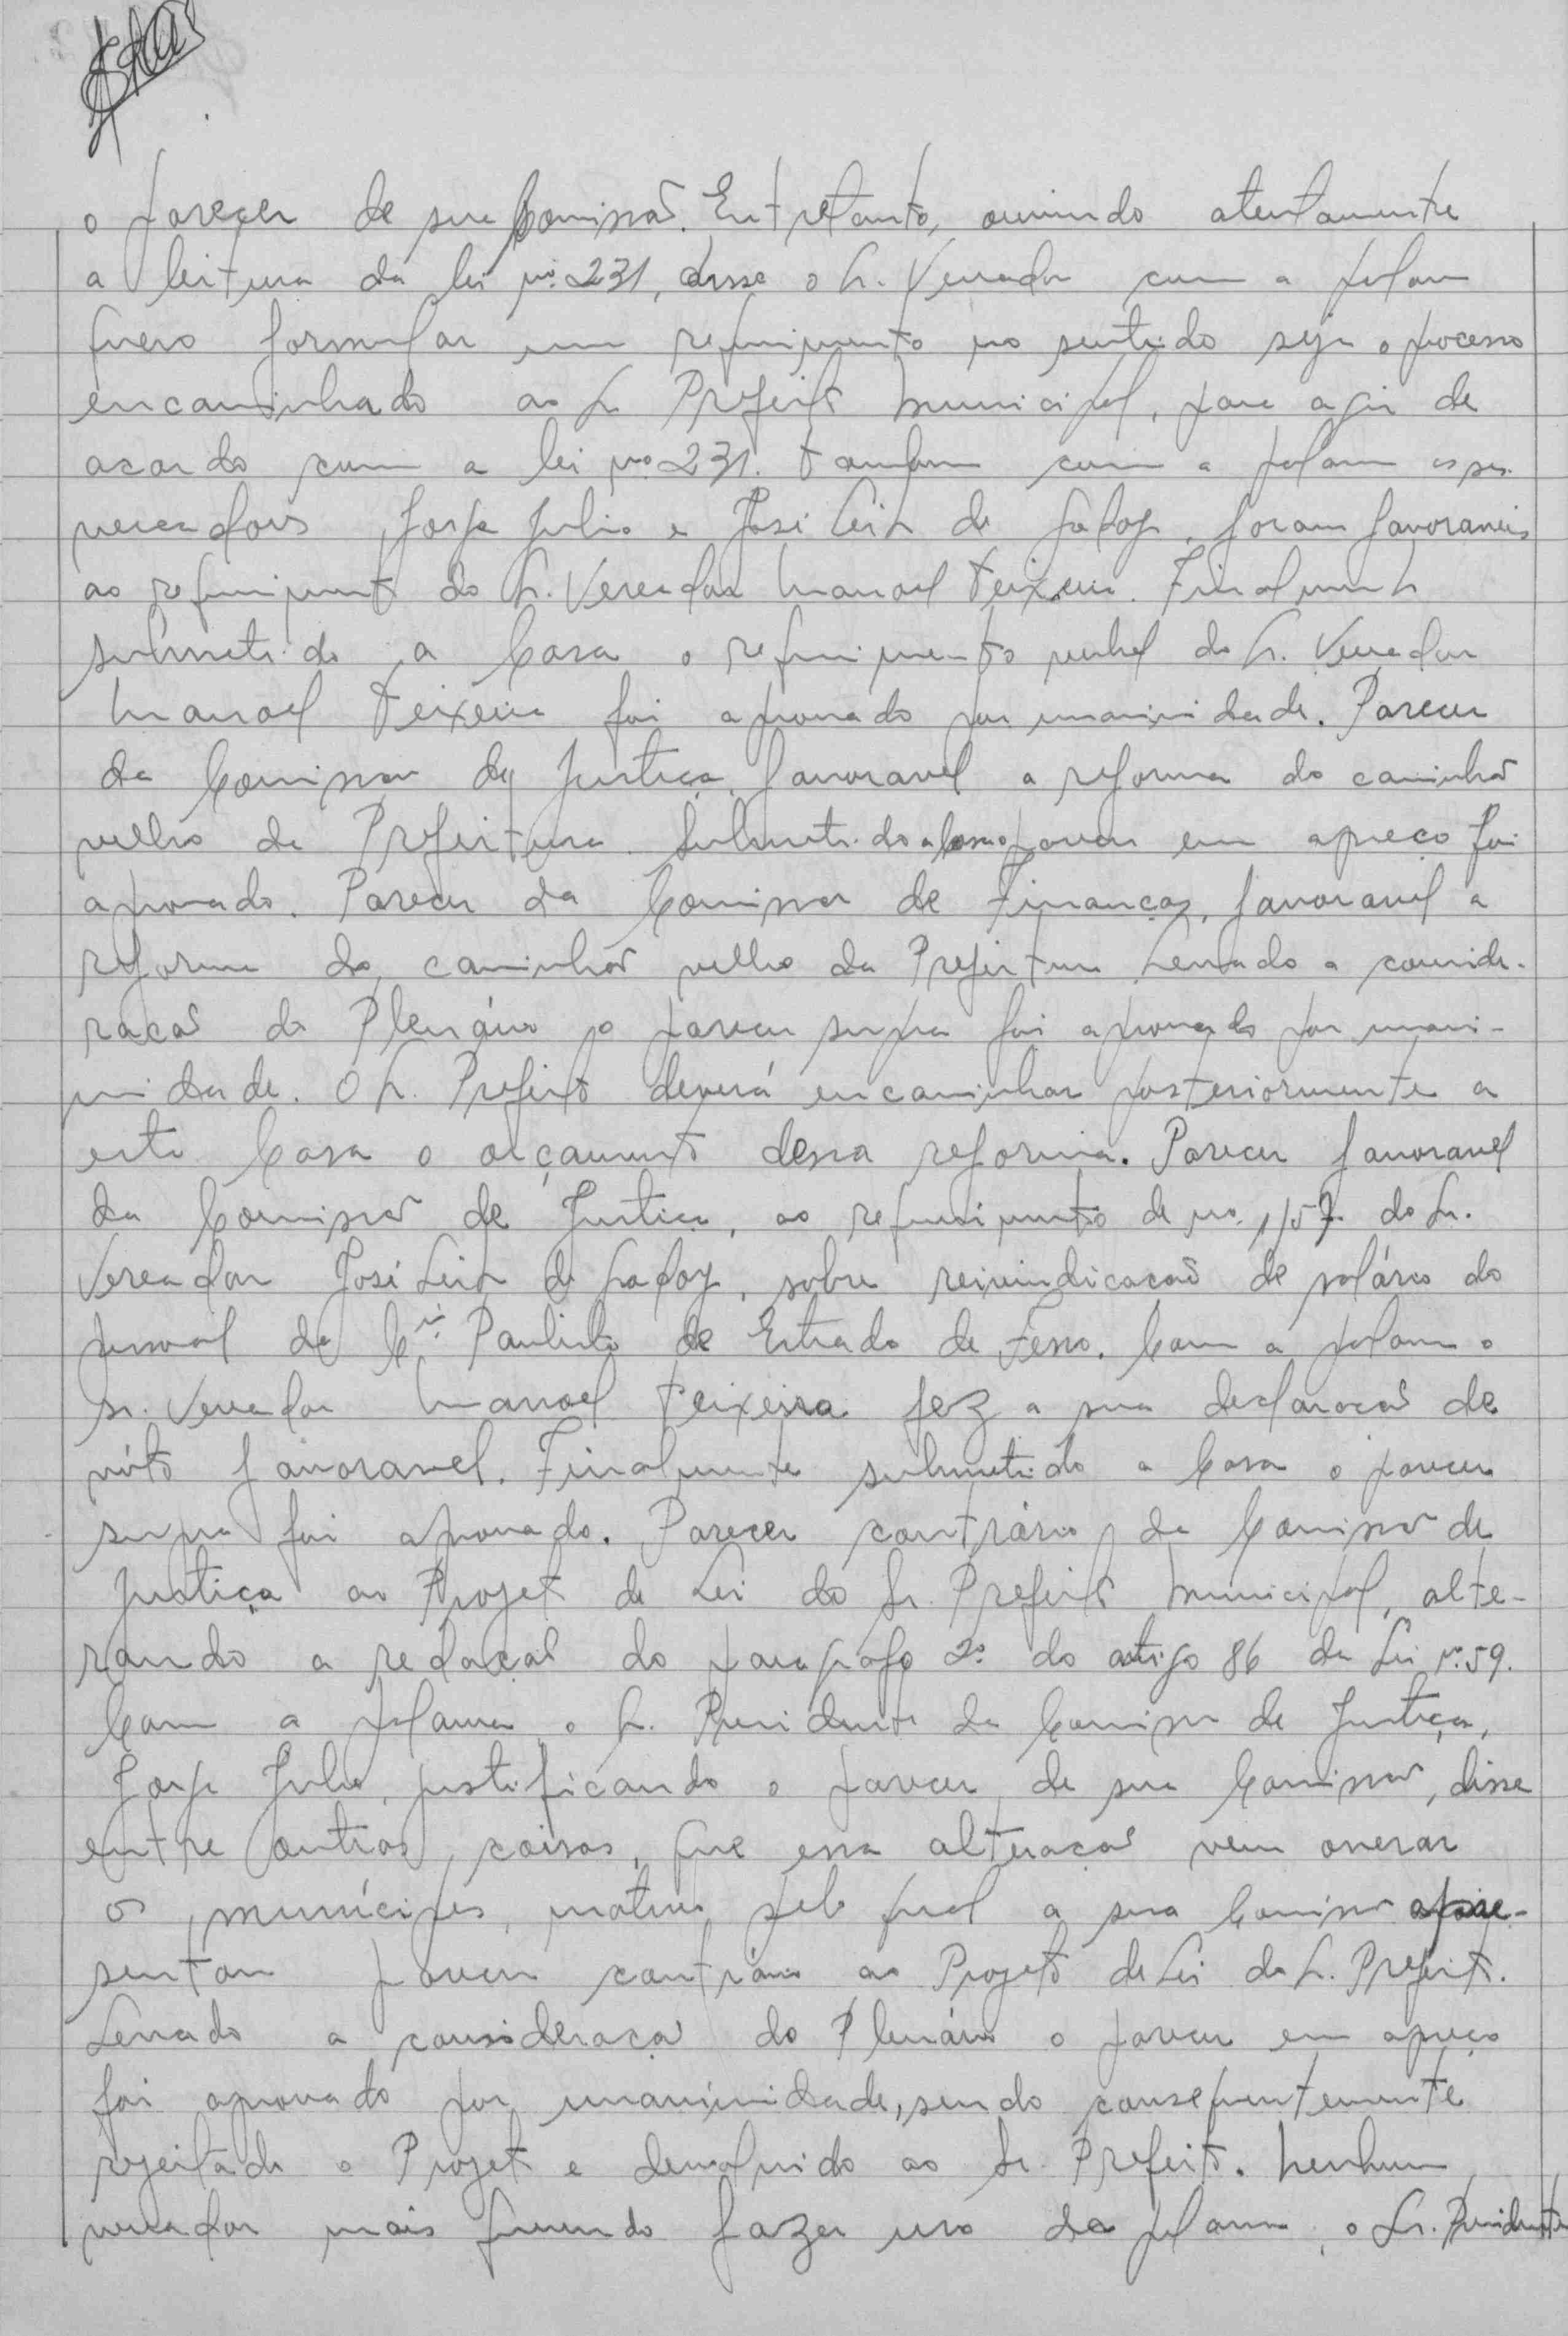 o parecer de sua Comissão. Entretanto, ouvindo atentamente
a leitura da lei nº 231, disse o Sr. Vereador com a palavra
quero formular um requerimento no sentido seja o processo
encaminhado ao Sr Prefeito Municipal, para agir de
acordo com a lei nº 231. Tambem com a palavra os srs.
vereadores Jorge Julio e José Leite de Godoy, foram favoraveis
ao requerimento do Sr. Vereador Manoel Teixeira. Finalmente
submetido a Casa o requerimento verbal do Sr. Vereador
Manoel Teixeira foi aprovado por unanimidade. Parecer
da Comissão de Justiça, favoravel a reforma do caminhão
velho da Prefeitura. Submetido a Casa o parecer em apreço foi
aprovado. Parecer da Comissão de Finanças, favoravel a
reforma do caminhão velho da Prefeitura. Levado a conside-
ração do Plenário o parecer supra foi aprovado por unani-
midade. O Sr. Prefeito deverá encaminhar posteriormente a
esta Casa o orçamento dessa reforma. Parecer favoravel
da Comissão de Justiça, ao requerimento de no. 1/57 do Sr.
Vereador José Leite de Godoy, sobre reivindicação de salário do
pessoal da Cia. Paulista de Estrada de Ferro. Com a palavra o
sr. Vereador Manoel Teixeira fez a sua declaração de
vóto favoravel. Finalmente submetido a Casa o parecer
supra foi aprovado. Parecer contrário da Comissão de
Justiça ao Projeto de Lei do Sr. Prefeito Municipal, alte-
rando a redação do paragrafo 2º do artigo 86 da Lei nº 59.
Com a palavra o Sr. Presidente da Comissão de Justiça,
Jorge Julio, justificando o parecer de sua Comissão, disse
entre outras coisas, que essa alteração vem onerar
os munícipes, motivo pelo qual a sua Comissão apre-
sentou parecer contrário ao Projeto de Lei do Sr. Prefeito.
Levado a consideração do Plenário o parecer em apreço
foi aprovado por unanimidade, sendo consequentemente
rejeitado o Projeto e devolvido ao Sr. Prefeito. Nenhum
vereador mais querendo fazer uso da palavra, o Sr. Presidente